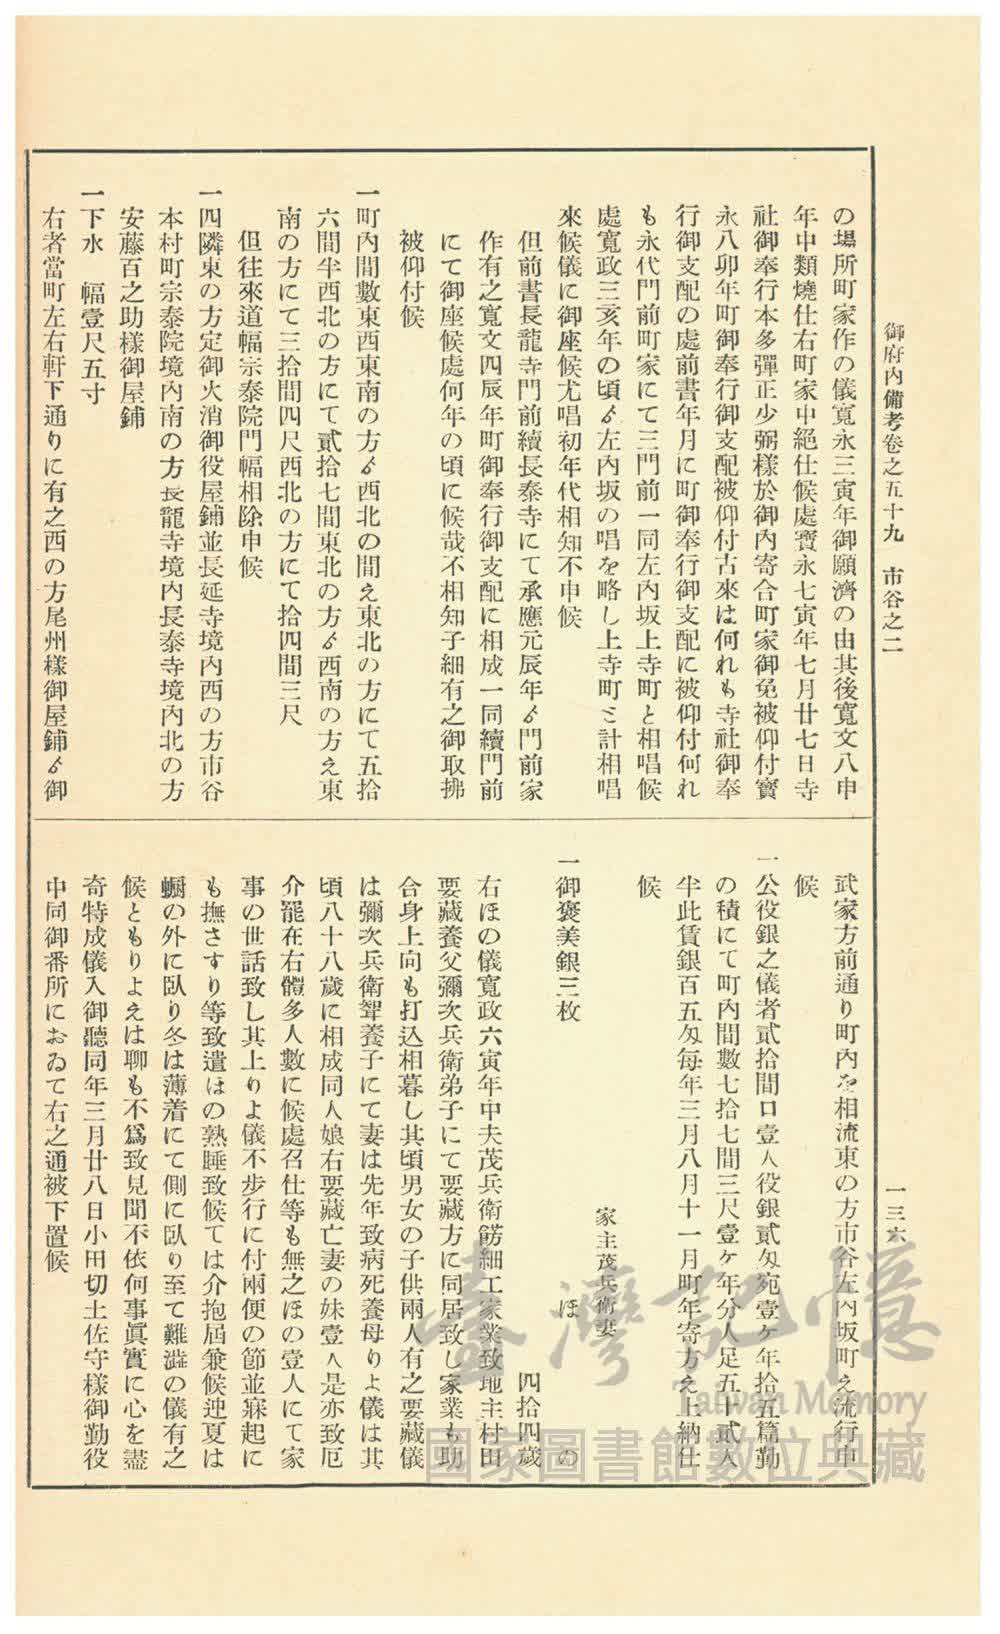 御府内備考卷之五十九　市谷之二
一三六
の場所町家作の儀寬永三寅年御願濟の由其後寬文八申
年中類燒仕右町家中絕仕候處寶永七寅年七月廿七日寺
社御奉行本多彈正少弼樣於御內寄合町家御免被仰付寶
永八卯年町御奉行御支配被仰付古來は何れも寺社御奉
行御支配の處前書年月に町御奉行御支配に被仰付何れ
も永代門前町家にて三門前一同左內坂上寺町と相唱候
處寬政三亥年の頃ゟ左內坂の唱を略し上寺町ミ計相唱
來候儀に御座候尤唱初年代相知不申候
但前書長龍寺門前續長泰寺にて承應元辰年ゟ門前家
作有之寬文四辰年町御奉行御支配に相成一同續門前
にて御座候處何年の頃に候哉不相知子細有之御取拂
被仰付候
一町內間數東西東南の方ゟ西北の間え東北の方にて五拾
六間半西北の方にて貳拾七間東北の方ゟ西南の方え東
南の方にて三拾間四尺西北の方にて拾四間三尺
但往來道幅宗泰院門幅相除申候
一四隣東の方定御火消御役屋鋪並長延寺境內西の方市谷
本村町宗泰院境內南の方長龍寺境內長泰寺境內北の方
安藤百之助樣御屋鋪
一下水　幅壹尺五寸
右者當町左右軒下通りに有之西の方尾州樣御屋鋪ゟ御
武家方前通り町內を相流東の方市谷左內坂町え流行申
候
一公役銀之儀者貳拾間口壹人役銀貳匁宛壹ケ年拾五篇勤
の積にて町內間數七拾七間三尺壹ケ年分人足五十貳人
半此賃銀百五匁每年三月八月十一月町年寄方え上納仕
候
家主茂兵衞妻
一御褒美銀三枚　ほの
四拾四歲
右ほの儀寬政六寅年中夫茂兵衞餝細工家業致地主村田
要藏養父彌次兵衞弟子にて要藏方に同居致し家業も助
合身上向も打込相暮し其頃男女の子供兩人有之要藏儀
は彌次兵衞聟養子にて妻は先年致病死養母りよ儀は其
頃八十八歲に相成同人娘右要藏亡妻の妹壹人是亦致厄
介罷在右體多人數に候處召仕等も無之ほの壹人にて家
事の世話致し其上りよ儀不步行に付兩便の節並寐起に
も撫さすり等致遣ほの熟睡致候ては介抱屆兼候迚夏は
蚊の外に臥り冬は薄着にて側に臥り至て難澁の儀有之
候ともりよえは聊も不爲致見聞不依何事眞實に心を盡
奇特成儀入御聽同年三月廿八日小田切土佐守樣御勤役
中同御番所におゐて右之通被下置候
臺灣記憶
Taiwan Memory
國家圖書館數位典藏